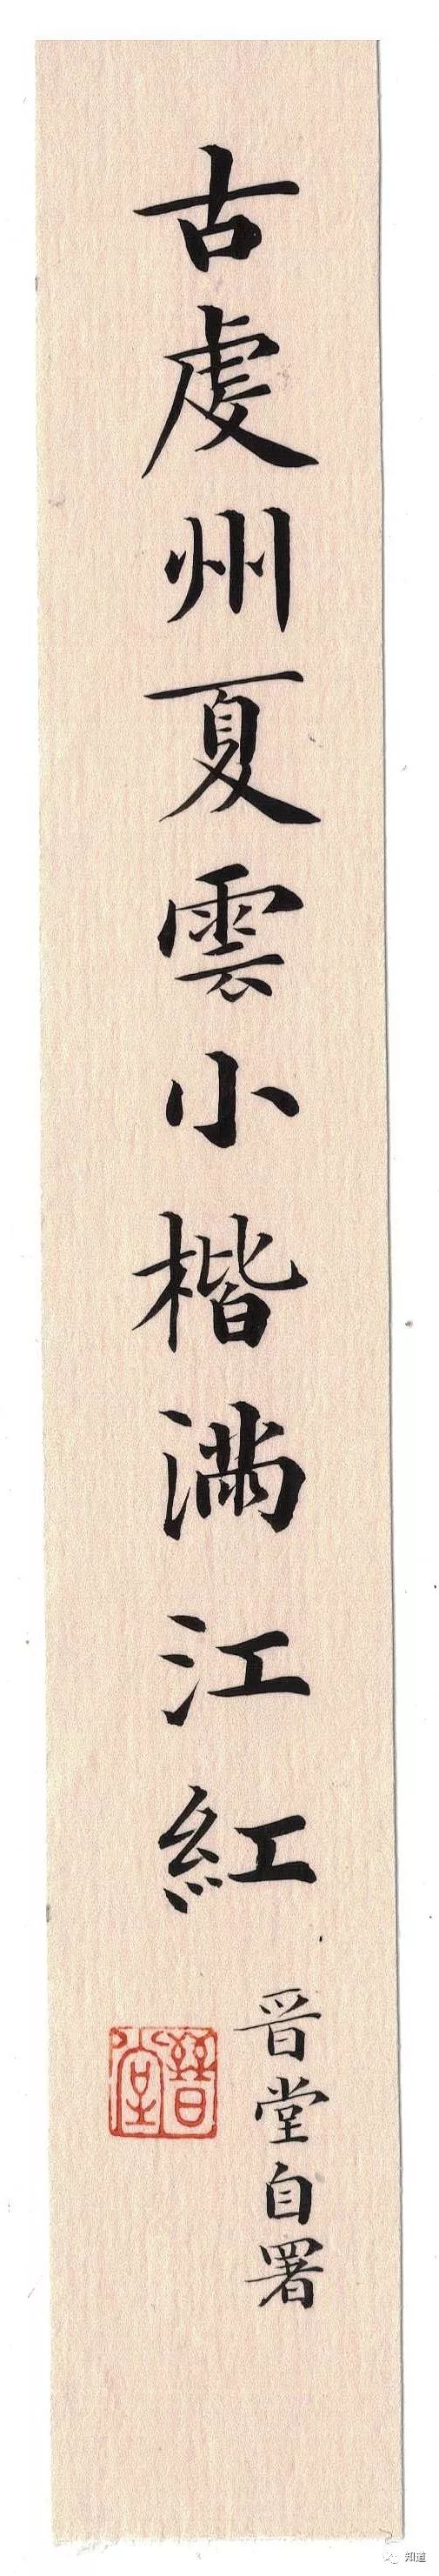 古虔州夏雲小楷滿江紅
晋堂自署
晉堂
知道